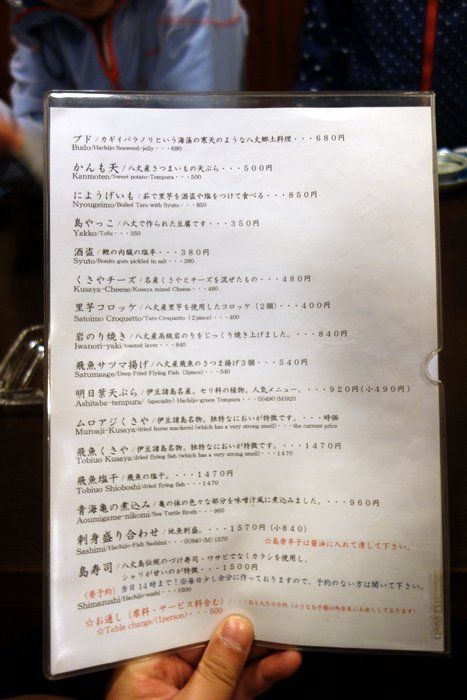 ブド / カギイバラノリという海藻の寒天のような八丈郷土料理・・・680円
Budo/Hachijo Seaweed-jelly・・・680
かんも天 / 八丈産さつまいもの天ぷら・・・500円
Kanmoten/Sweet potato-Tempura・・・500
にようげいも / 茹で里芋を酒盗や塩をつけて食べる・・・850円
Nyougeimo/Boiled Taro with Syuto・・・850
島やっこ / 八丈で作られた豆腐です・・・350円
Yakko/Tofu・・・350
酒盗 / 鰹の内臓の塩辛・・・380円
Syuto/Bonito guts pickled in salt・・・380
くさやチーズ / 名産くさやとチーズを混ぜたもの・・・480円
Kusaya-Cheese/Kusaya mixed Cheese・・・480
里芋コロッケ / 八丈産里芋を使用したコロッケ（2個）・・・400円
Satoimo Croquetto/Taro Croquette（2piece）・・・400
岩のり焼き / 八丈産高級岩のりをじっくり焼き上げました。・・・840円
Iwanori-yaki/toasted laver・・・840
飛魚サツマ揚げ / 八丈産飛魚のさつま揚げ3個・・・540円
Satumaage/Deep Fried Flying Fish（3piece）・・・540
明日葉天ぷら / 伊豆諸島名産。セリ科の植物。人気メニュー。・・・920円(小490円)
Ashitaba-tempura/（specialty）Hachijo-green Tempura・・・(S)490 (M)920
ムロアジくさや / 伊豆諸島名物。独特なにおいが特徴です。・・・時価
Muroaji-Kusaya/dried horse mackerel (which has a very strong smell)・・・the current price
飛魚くさや / 伊豆諸島名物。独特なにおいが特徴です。・・・1470円
Tobiuo Kusaya/dried flying fish (which has a very strong smell)・・・1470
飛魚塩干 / 飛魚の塩干。・・・1470円
Tobiuo Shioboshi/dried flying fish・・・1470
青海亀の煮込み / 亀の体の色々な部分を味噌汁風に煮込みました。・・・960円
Aoumigame-nikomi/Sea Turtle Broth・・・960
刺身盛り合わせ / 地魚刺盛。・・・1570円（小840）
Sashimi/Hachijo-Fish Sashimi・・・(S)840 (M) 1570
☆島唐辛子は醤油に入れて潰して下さい。
島寿司 / 八丈島伝統のづけ寿司・ワサビでなくカラシを使用し、
シャリが甘いのが特徴・・・1500円
（要予約）当日14時まで！※毎日少し余分に作っておりますので、予約のない方は聞いて下さい。
Shimazushi/Hachijo-sushi・・・1500
☆お通し（席料・サービス料含む）/・・・お1人500円（小さなお子様以外全員にお出ししております）
☆Table charge/(1person)・・・500